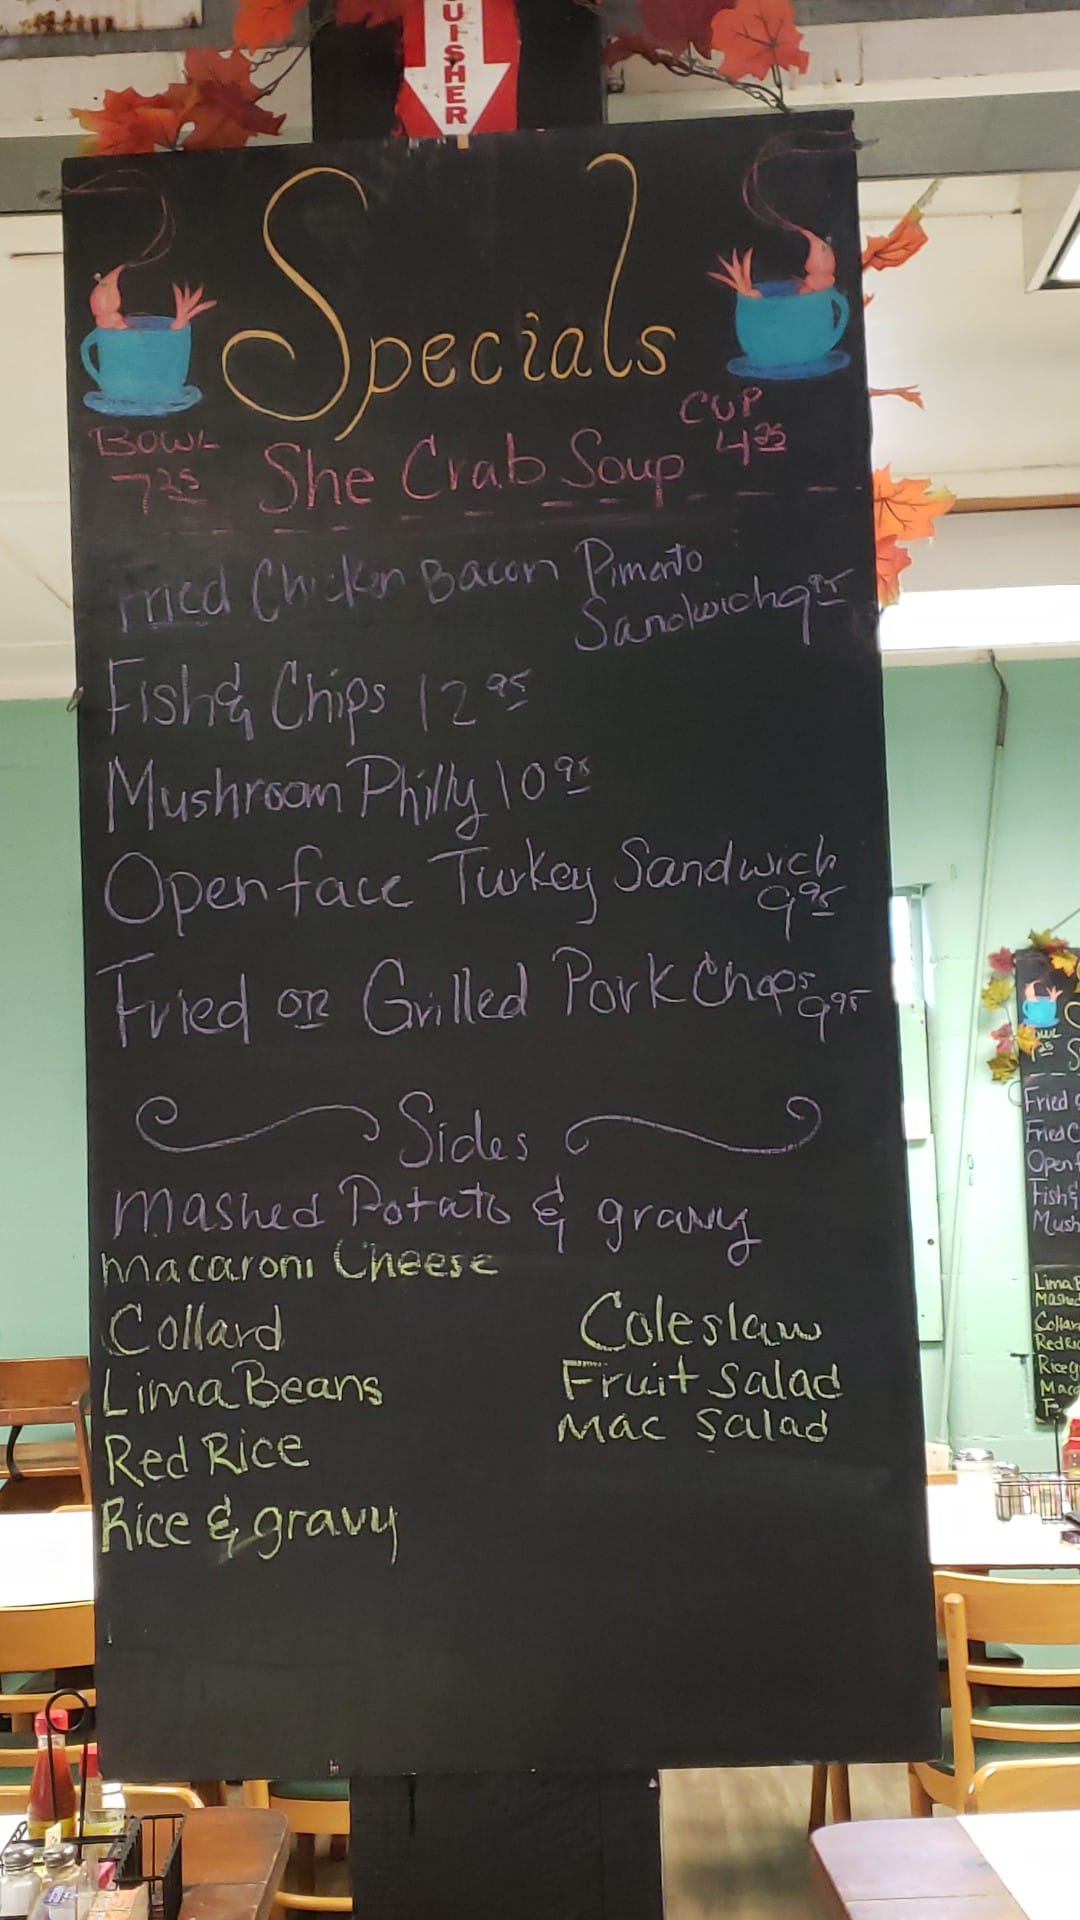 UISHER
Specials
BOWL
7 25
She Crab Soup
CUP
4 25
Fried Chicken Bacon Pimento
Sandwich 9 95
Fish & Chips 12 95
Mushroom Philly 10 95
Open face Turkey Sandwich
9 95
Fried or Grilled Pork Chops 9 95
Sides
Mashed Potato & gravy
Macaroni Cheese
Collard
Lima Beans
Red Rice
Rice & gravy
Coleslaw
Fruit Salad
Mac Salad
Fried
Fried C
Open f
Fish &
Mush
Lima B
Mashed
Collar
Red Ri
Rice g
Maca